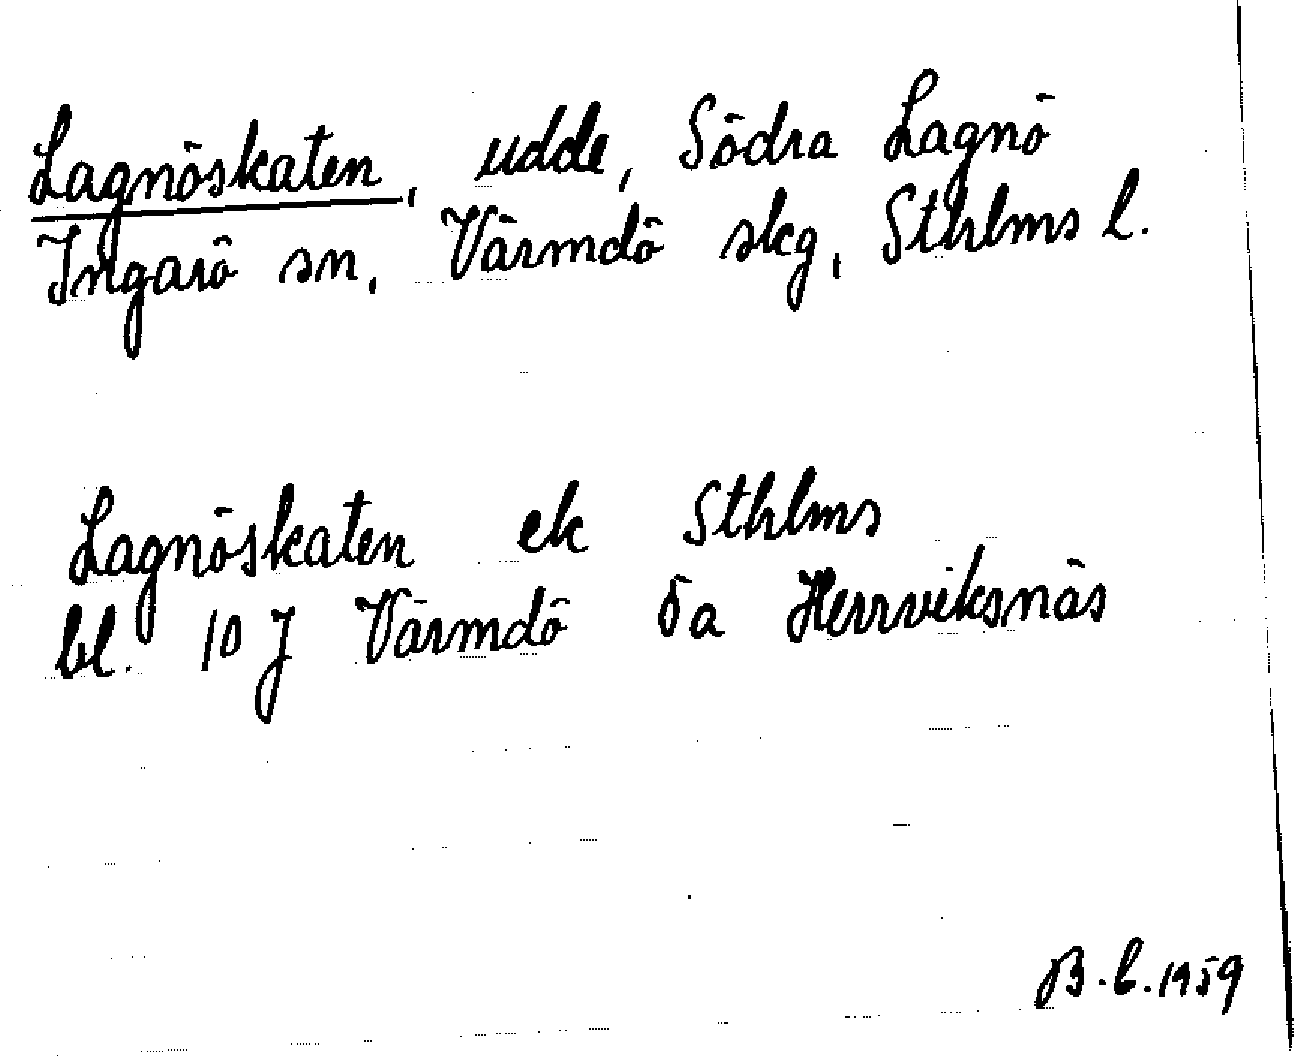 Lagnöskaten, udde, Södra Lagnö
Ingarö sn, Värmdö skg, Sthlms l.
Lagnöskaten ek Sthlms
bl. 10 J Värmdö öa Herrviksnäs
B.L. 1959